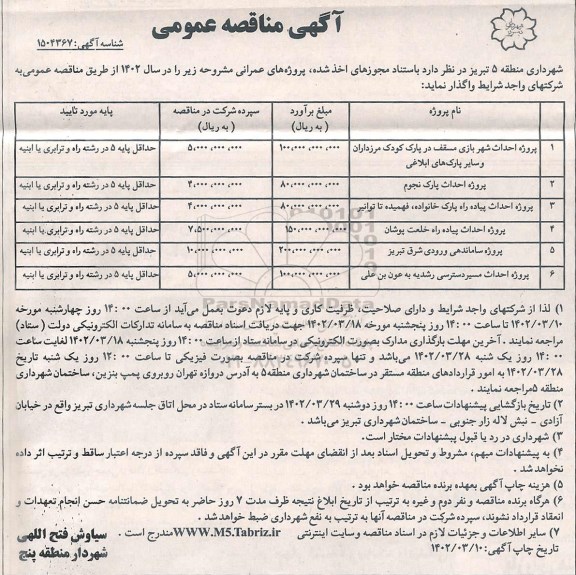 آگهی مناقصه عمومی
شناسه آگهی: ۱۵۰۴۳۶۷
شهرداری منطقه ۵ تبریز در نظر دارد باستناد مجوزهای اخذ شده، پروژه‌های عمرانی مشروحه زیر را در سال ۱۴۰۲ از طریق مناقصه عمومی به
شرکتهای واجد شرایط واگذار نماید:
نام پروژه | مبلغ برآورد (به ریال) | سپرده شرکت در مناقصه (به ریال) | پایه مورد تایید
۱ | پروژه احداث شهر بازی مسقف در پارک کودک مرزداران وسایر پارک‌های ابلاغی | ۱۰۰،۰۰۰،۰۰۰،۰۰۰ | ۵،۰۰۰،۰۰۰،۰۰۰ | حداقل پایه ۵ در رشته راه و ترابری یا ابنیه
۲ | پروژه احداث پارک نجوم | ۸۰،۰۰۰،۰۰۰،۰۰۰ | ۴،۰۰۰،۰۰۰،۰۰۰ | حداقل پایه ۵ در رشته راه و ترابری یا ابنیه
۳ | پروژه احداث پیاده راه پارک خانواده، فهمیده تا توانیر | ۸۰،۰۰۰،۰۰۰،۰۰۰ | ۴،۰۰۰،۰۰۰،۰۰۰ | حداقل پایه ۵ در رشته راه و ترابری یا ابنیه
۴ | پروژه احداث پیاده راه خلعت پوشان | ۱۵۰،۰۰۰،۰۰۰،۰۰۰ | ۷،۵۰۰،۰۰۰،۰۰۰ | حداقل پایه ۵ در رشته راه و ترابری یا ابنیه
۵ | پروژه ساماندهی ورودی شرق تبریز | ۲۰۰،۰۰۰،۰۰۰،۰۰۰ | ۱۰،۰۰۰،۰۰۰،۰۰۰ | حداقل پایه ۵ در رشته راه و ترابری یا ابنیه
۶ | پروژه احداث مسیردسترسی رشدیه به عون بن علی | ۱۰۰،۰۰۰،۰۰۰،۰۰۰ | ۵،۰۰۰،۰۰۰،۰۰۰ | حداقل پایه ۵ در رشته راه و ترابری یا ابنیه
۱) لذا از شرکتهای واجد شرایط و دارای صلاحیت، ظرفیت کاری و پایه لازم دعوت بعمل می‌آید از ساعت ۱۴:۰۰ روز چهارشنبه مورخه
۱۴۰۲/۰۳/۱۰ تا ساعت ۱۴:۰۰ روز پنجشنبه مورخه ۱۴۰۲/۰۳/۱۸ جهت دریافت اسناد مناقصه به سامانه تدارکات الکترونیکی دولت (ستاد)
مراجعه نمایند . آخرین مهلت بارگذاری مدارک بصورت الکترونیکی در سامانه ستاد از ساعت ۱۴:۰۰ روز پنجشنبه ۱۴۰۲/۰۳/۱۸ لغایت ساعت
۱۴:۰۰ روز یک شنبه ۱۴۰۲/۰۳/۲۸ می‌باشد و تنها سپرده شرکت در مناقصه بصورت فیزیکی تا ساعت ۱۲:۰۰ روز یک شنبه تاریخ
۱۴۰۲/۰۳/۲۸ به امور قراردادهای منطقه مستقر در ساختمان شهرداری منطقه۵ به آدرس دروازه تهران روبروی پمپ بنزین، ساختمان شهرداری
منطقه ۵مراجعه نمایند .
۲) تاریخ بازگشایی پیشنهادات ساعت ۱۴:۰۰ روز دوشنبه ۱۴۰۲/۰۳/۲۹ در بستر سامانه ستاد در محل اتاق جلسه شهرداری تبریز واقع در خیابان
آزادی - نبش لاله زار جنوبی - ساختمان شهرداری تبریز می‌باشد .
۳) شهرداری در رد یا قبول پیشنهادات مختار است.
۴) به پیشنهادات مبهم، مشروط و تحویل اسناد بعد از انقضای مهلت مقرر در این آگهی و فاقد سپرده از درجه اعتبار ساقط و ترتیب اثر داده
نخواهد شد .
۵) هزینه چاپ آگهی بعهده برنده مناقصه خواهد بود .
۶) هرگاه برنده مناقصه و نفر دوم و غیره به ترتیب از تاریخ ابلاغ نتیجه ظرف مدت ۷ روز حاضر به تحویل ضمانتنامه حسن انجام تعهدات و
انعقاد قرارداد نشوند، سپرده شرکت در مناقصه آنها به ترتیب به نفع شهرداری ضبط خواهد شد .
۷) سایر اطلاعات و جزئیات لازم در اسناد مناقصه و سایت اینترنتی WWW.M5.Tabriz.ir مندرج است .
تاریخ چاپ آگهی: ۱۴۰۲/۰۳/۱۰
سیاوش فتح اللهی
شهردار منطقه پنج
ParsNamadData